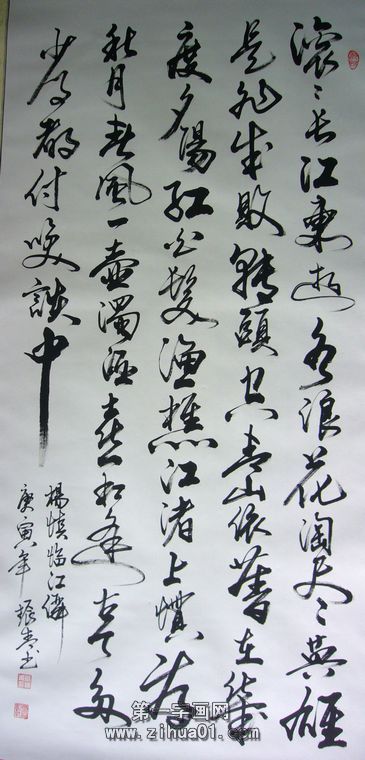 滾〻長江東逝水浪花淘尽英雄
是非成敗轉頭空青山依舊在幾
度夕陽紅白髮漁樵江渚上慣看
秋月春風一壺濁酒喜相逢古今多
少事都付笑談中
楊慎臨江僊
庚寅年
第一字画网
www.zihua01.com